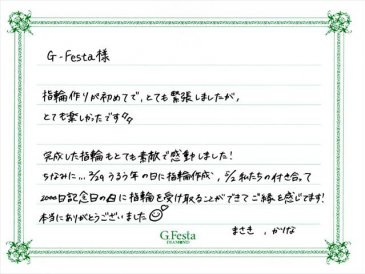 G-Festa様
指輪作りが初めてで、とても緊張しましたが、
とても楽しかったです
完成した指輪もとても素敵で感動しました!
ちなみに…2/29うるう年の日に指輪作成、5/2私たちの付き合って
2000日記念日の日に指輪を受け取ることができてご縁を感じてます!
本当にありがとうございました
まさき、かりな
G.Festa
DIAMOND